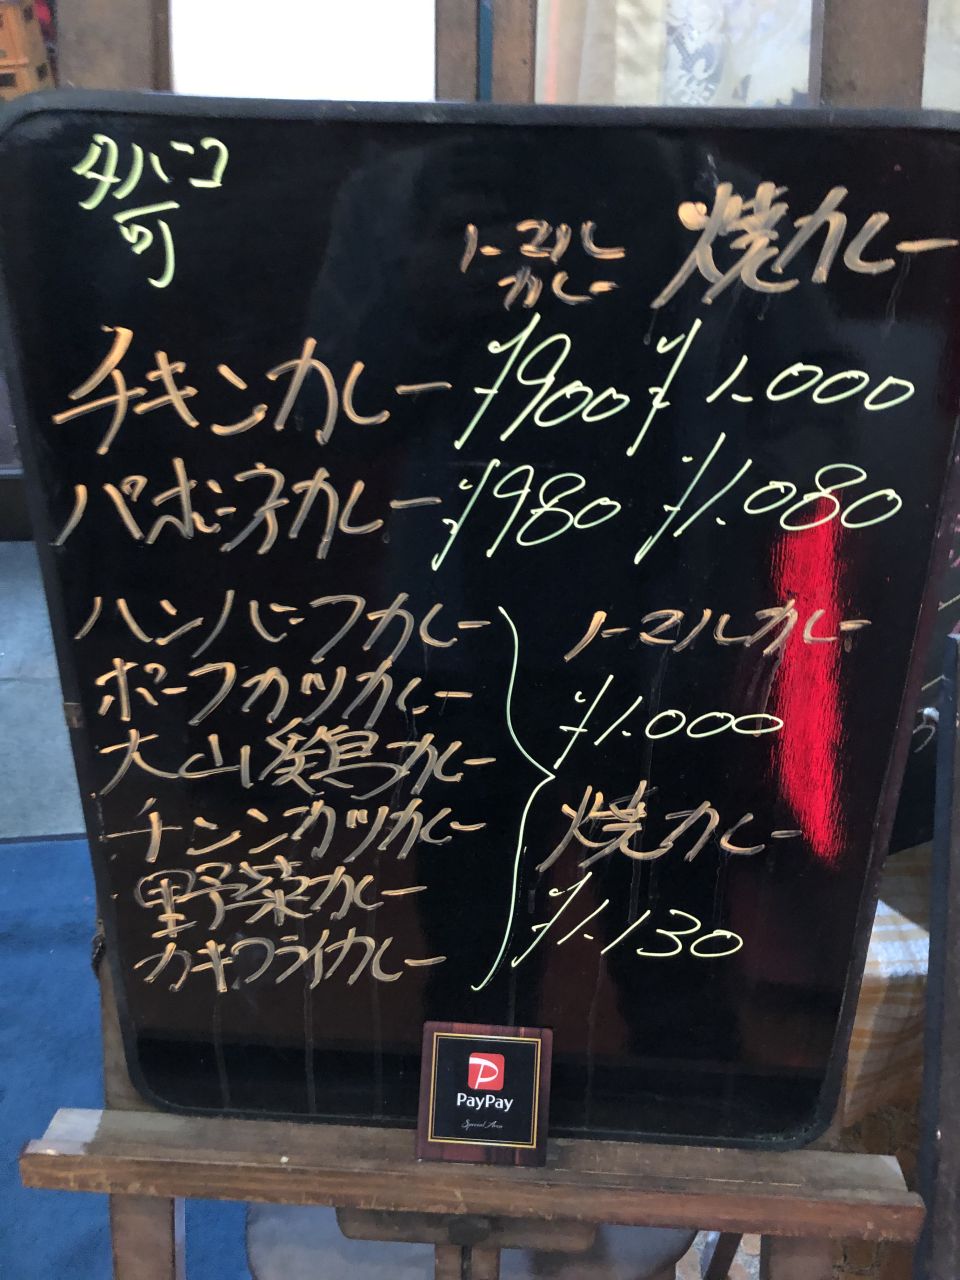 タバコ
可
ノーマル
カレー
焼カレー
チキンカレー ¥900 ¥1.000
¥980 ¥1.080
ハンバーグカレー
ポークカツカレー
大山鶏カレー
チキンカツカレー
野菜カレー
カキフライカレー
ノーマルカレー
¥1.000
焼カレー
¥1.130
PayPay
Special Area